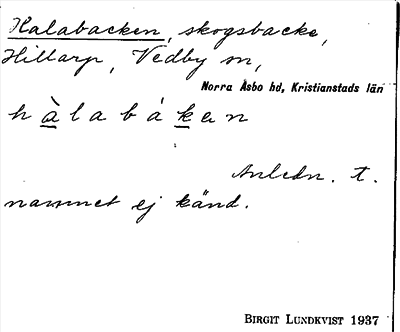 Halabacken, skogsbacke,
Hillarp, Vedby sn,
Norra Åsbo hd, Kristianstads län
hàlabáken
Anledn. t.
namnet ej känd.
BIRGIT LUNDKVIST 1937